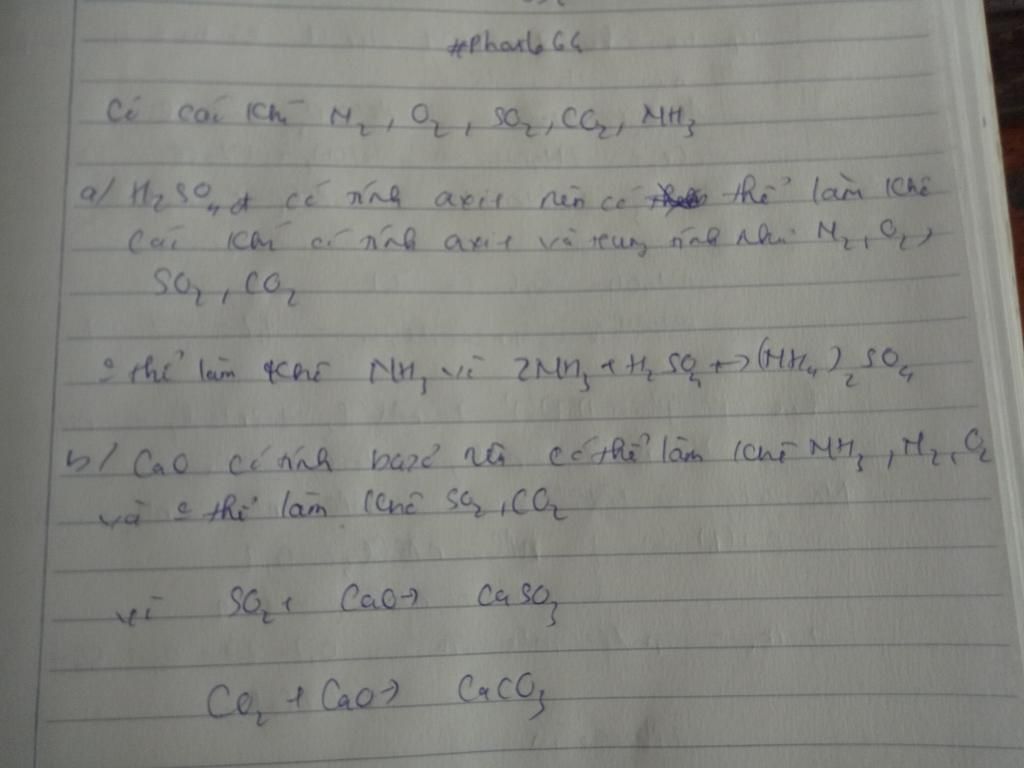 Có các khí N2, O2, SO2, CO2, NH3
a/ H2SO4 đ có tính axit nên có thể làm khô
các khí có tính axit và trung tính như N2, O2,
SO2, CO2
o thể làm khô NH3 vì 2NH3 + H2SO4 → (NH4)2SO4
b/ CaO có tính bazơ nên có thể làm khô NH3, N2, O2
và o thể làm khô SO2, CO2
vì SO2 + CaO → CaSO3
CO2 + CaO → CaCO3